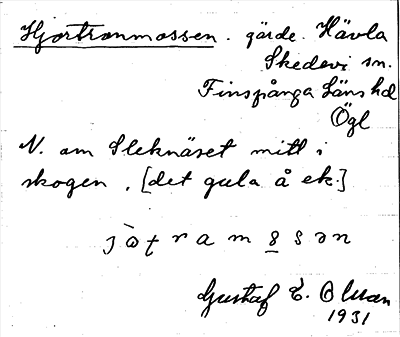 Hjortronmossen. gärde. Hävla
Skedevi sn.
Finspånga Läns hd
Ögl
N. om Sleknäset mitt i
skogen, [det gula å ek.]
Gustaf E. Olsson
1931